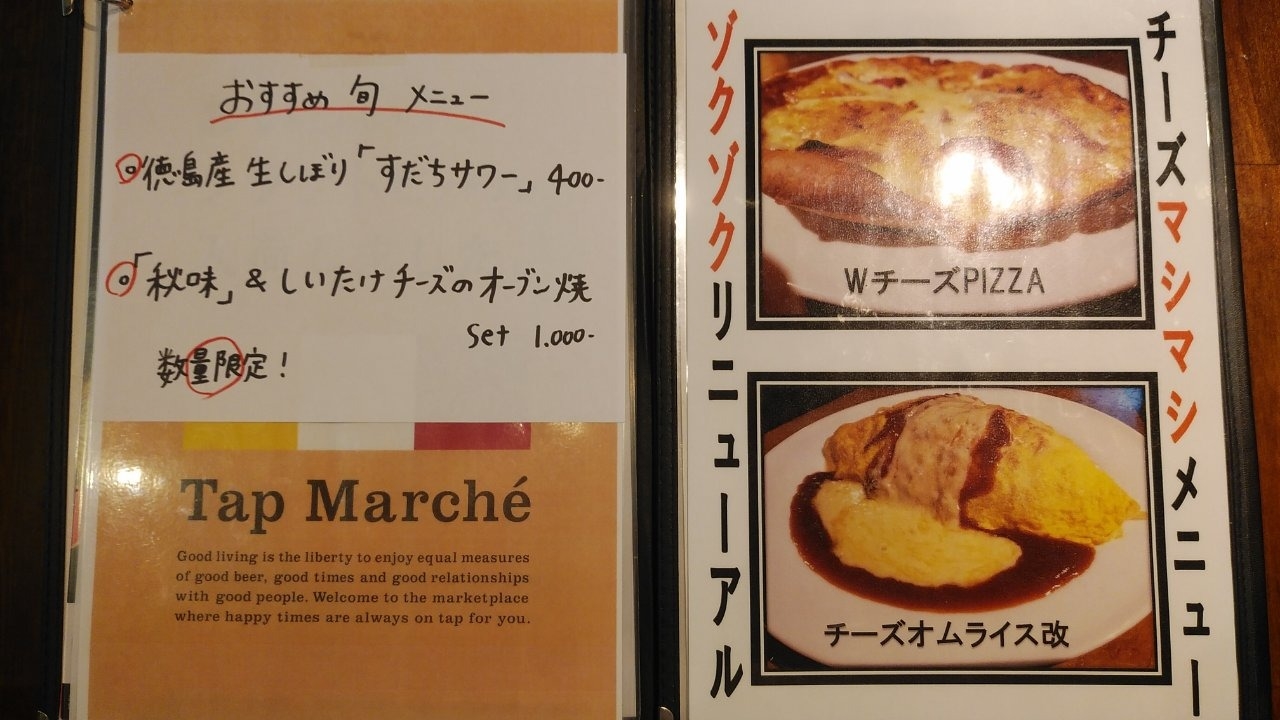 おすすめ 旬 メニュー
◎徳島産 生しぼり「すだちサワー」 400-
◎「秋味」& しいたけチーズのオーブン焼
set 1.000-
数量限定!
Tap Marché
Good living is the liberty to enjoy equal measures
of good beer, good times and good relationships
with good people. Welcome to the marketplace
where happy times are always on tap for you.
チーズマシマシメニュー
ゾクゾクリニューアル
WチーズPIZZA
チーズオムライス改